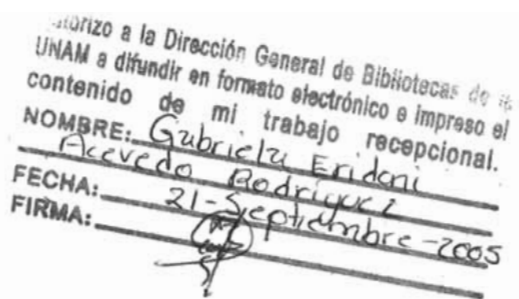 Autorizo a la Dirección General de Bibliotecas de la
UNAM a difundir en formato electrónico e impreso el
contenido de mi trabajo recepcional.
NOMBRE: Gabriela Eridani
Acevedo Rodriguez
FECHA: 21-Septiembre-2005
FIRMA: